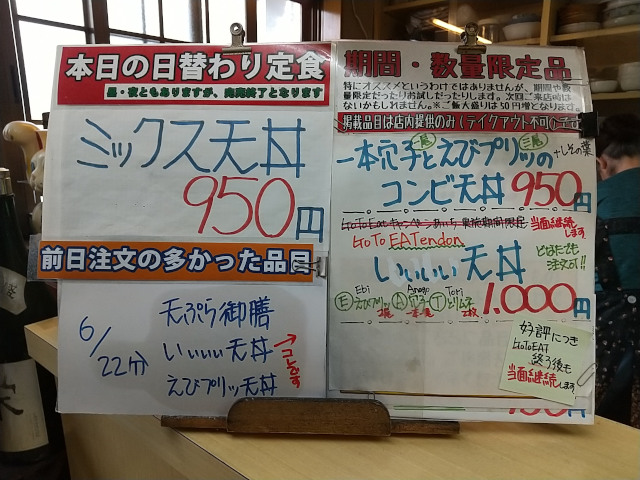 本日の日替わり定食
昼・夜ともありますが、完売終了となります
ミックス天丼
950円
前日注文の多かった品目
6/22分
天ぷら御膳
いぃぃぃ天丼
→コレです
えびプリッ天丼
期間・数量限定品
特にオススメというわけではありませんが、期間や数
量限定だったりお試しだったりします。次回ご来店時は
ないかもしれません。※ご飯大盛りは50円増となります。
掲載品目は店内提供のみ(テイクアウト不可)です
一本穴子とえびプリッの
二尾
+しその葉
コンビ天丼 950円
当面継続します。
GoTo EATendon
いぃぃぃ天丼
どなたでも
注文可!!
Ebi Anago Tori
Ⓔえびプリッ Ⓐ穴子 Ⓣとりムネ
1.000円
好評につき
GoToEAT
終了後も
当面継続します。